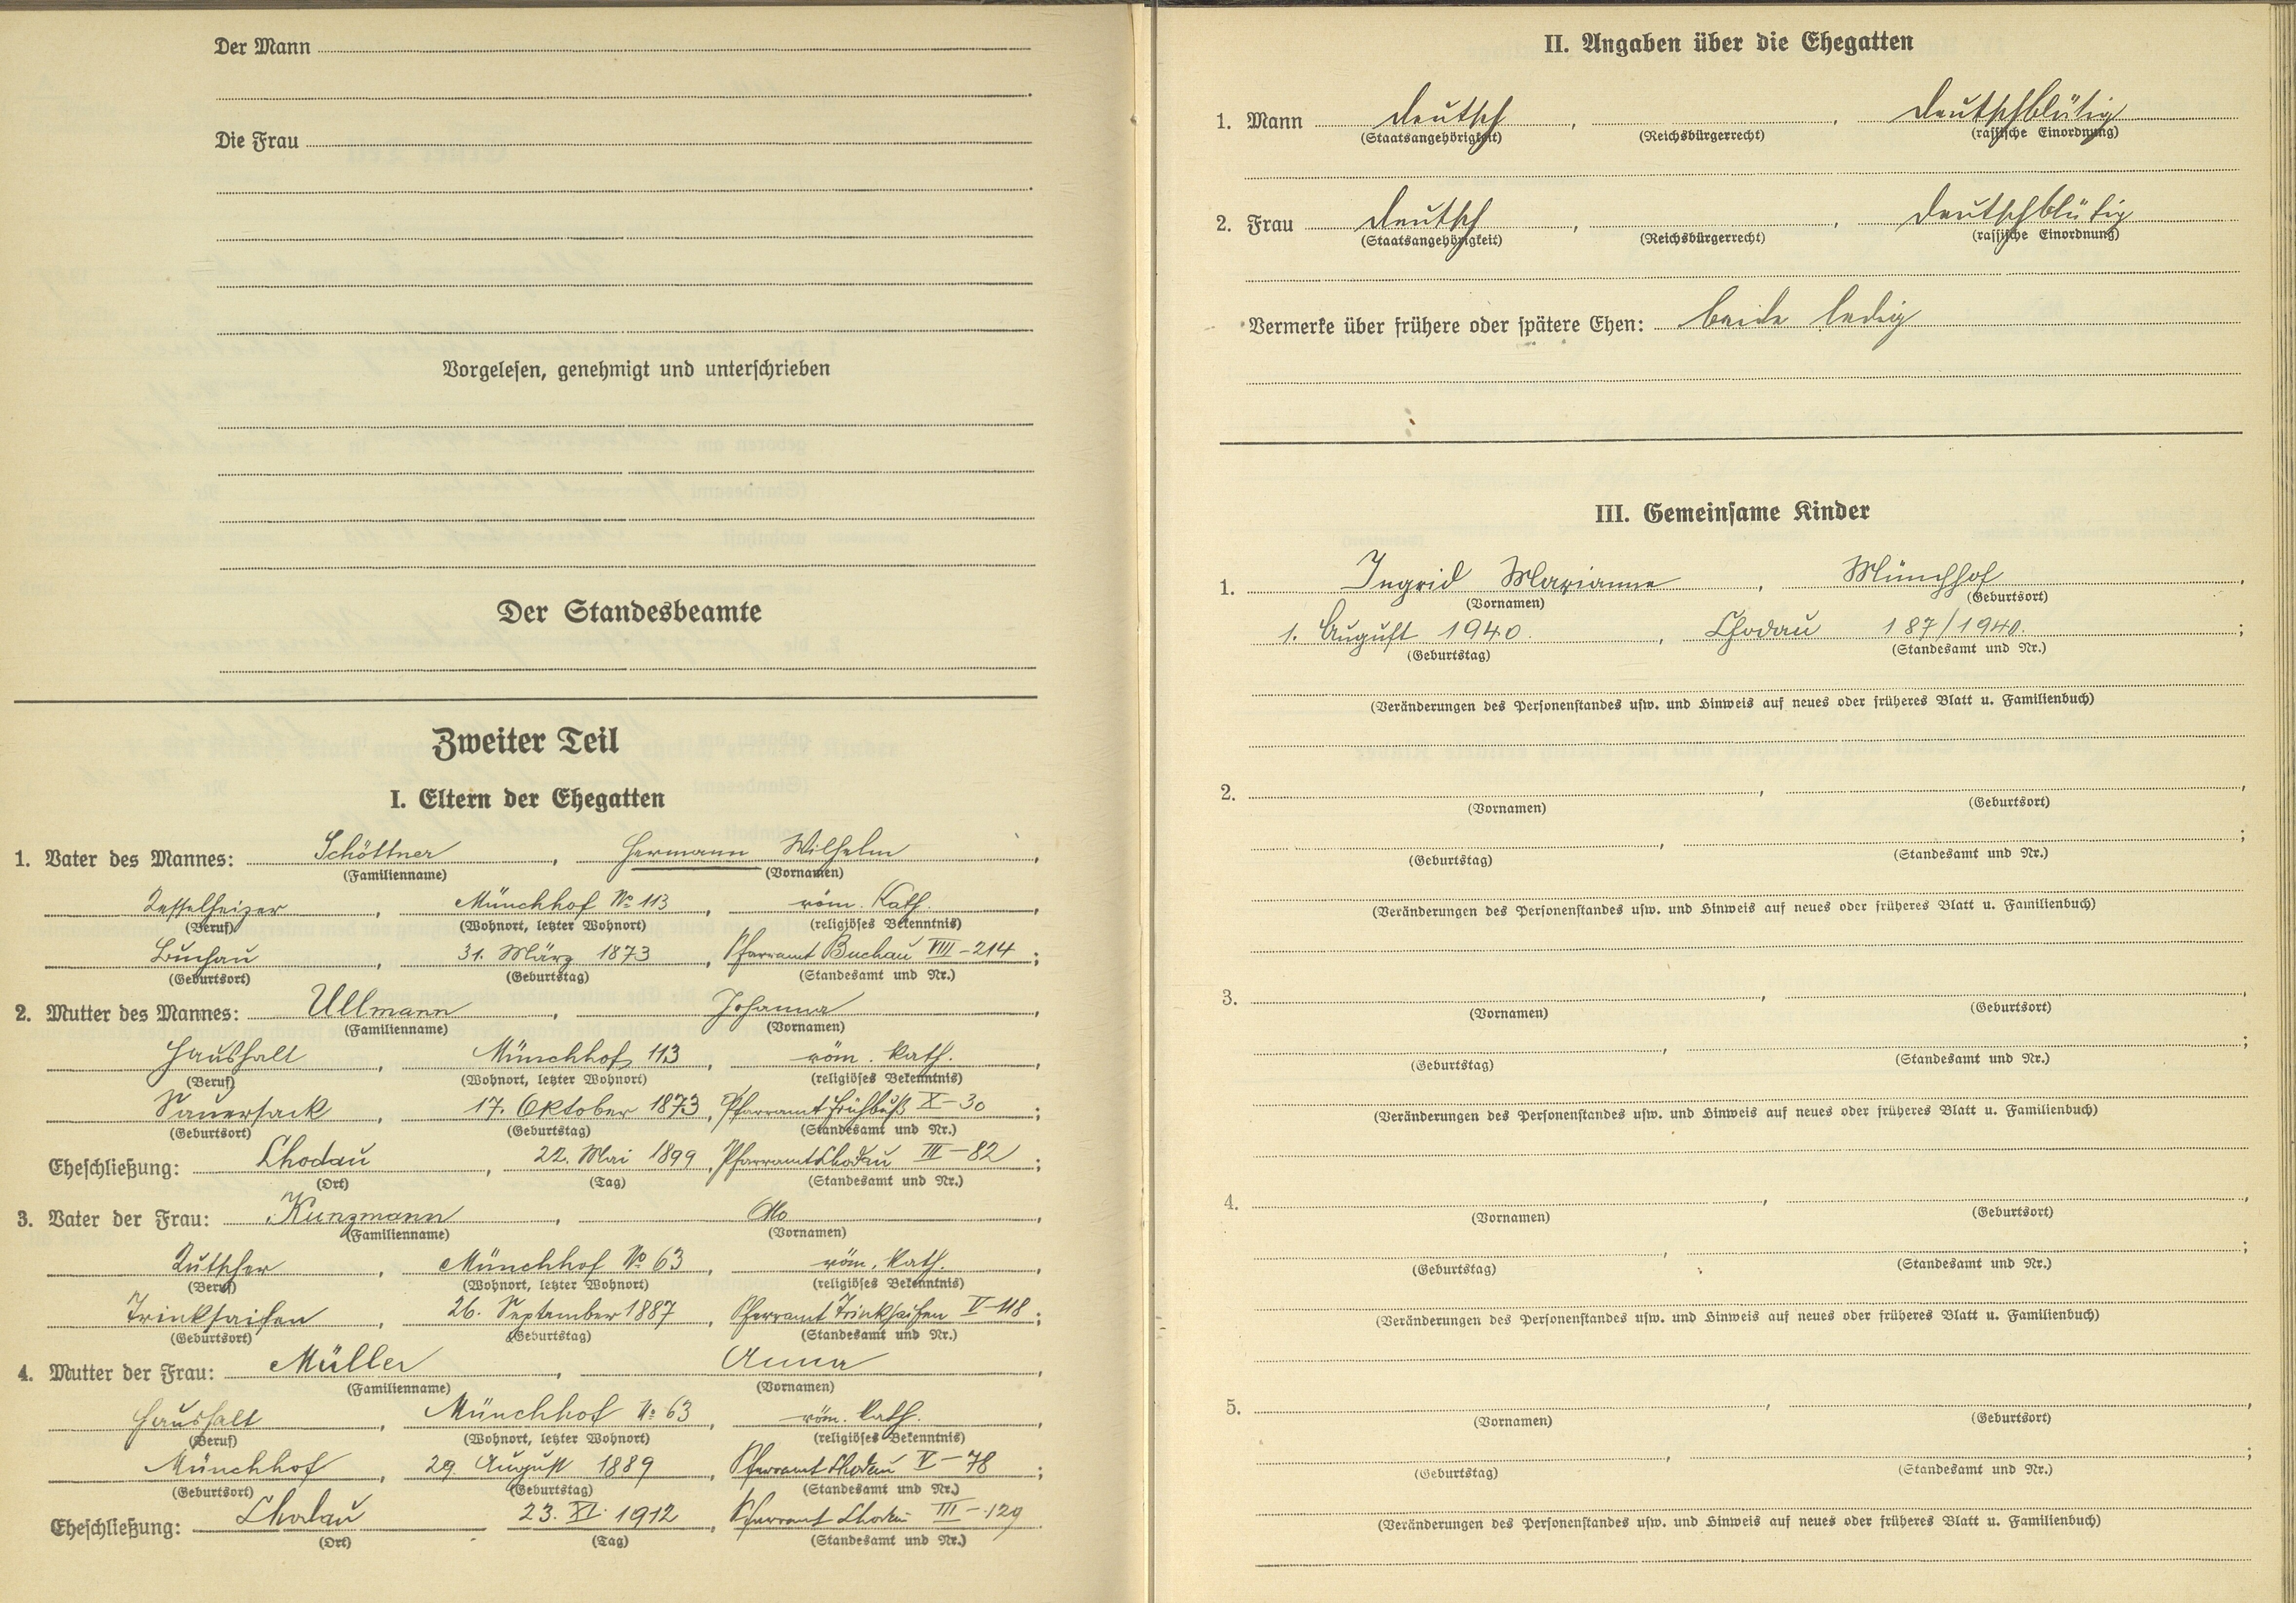 Der Mann
Die Frau
Vorgelesen, genehmigt und unterschrieben
Der Standesbeamte
Zweiter Teil
I. Eltern der Ehegatten
1. Vater des Mannes: Schöttner, Hermann Wilhelm,
(Familienname) (Vornamen)
Kesselheizer, Münchhof No 113, röm. Kath.,
(Beruf) (Wohnort, letzter Wohnort) (religiöses Bekenntnis)
Buchau, 31. März 1873, Pfarramt Buchau VIII-214;
(Geburtsort) (Geburtstag) (Standesamt und Nr.)
2. Mutter des Mannes: Ullmann, Johanna,
(Familienname) (Vornamen)
Haushalt, Münchhof 113, röm. kath.,
(Beruf) (Wohnort, letzter Wohnort) (religiöses Bekenntnis)
Sauersack, 17. Oktober 1873, Pfarramt Frühbuß X-30;
(Geburtsort) (Geburtstag) (Standesamt und Nr.)
Eheschließung: Chodau, 22. Mai 1899, Pfarramt Chodau III-82;
(Ort) (Tag) (Standesamt und Nr.)
3. Vater der Frau: Kunzmann, Otto,
(Familienname) (Vornamen)
Kutscher, Münchhof No 63, röm. kath.,
(Beruf) (Wohnort, letzter Wohnort) (religiöses Bekenntnis)
Trinksaifen, 26. September 1887, Pfarramt Trinksaifen V-118;
(Geburtsort) (Geburtstag) (Standesamt und Nr.)
4. Mutter der Frau: Müller, Anna,
(Familienname) (Vornamen)
Haushalt, Münchhof No 63, röm. kath.,
(Beruf) (Wohnort, letzter Wohnort) (religiöses Bekenntnis)
Münchhof, 29. August 1889, Pfarramt Chodau V-78;
(Geburtsort) (Geburtstag) (Standesamt und Nr.)
Eheschließung: Chodau 23. XI. 1912, Pfarramt Chodau III-129
(Ort) (Tag) (Standesamt und Nr.)
II. Angaben über die Ehegatten
1. Mann deutsch, , deutschblütig
(Staatsangehörigkeit) (Reichsbürgerrecht) (rassische Einordnung)
2. Frau deutsch, , deutschblütig
(Staatsangehörigkeit) (Reichsbürgerrecht) (rassische Einordnung)
Vermerke über frühere oder spätere Ehen: beide ledig
III. Gemeinsame Kinder
1. Ingrid Marianne, Münchhof,
(Vornamen) (Geburtsort)
1. August 1940., Chodau 187/1940.;
(Geburtstag) (Standesamt und Nr.)
(Veränderungen des Personenstandes usw. und Hinweis auf neues oder früheres Blatt u. Familienbuch)
2. , ,
(Vornamen) (Geburtsort)
, ;
(Geburtstag) (Standesamt und Nr.)
(Veränderungen des Personenstandes usw. und Hinweis auf neues oder früheres Blatt u. Familienbuch)
3. , ,
(Vornamen) (Geburtsort)
, ;
(Geburtstag) (Standesamt und Nr.)
(Veränderungen des Personenstandes usw. und Hinweis auf neues oder früheres Blatt u. Familienbuch)
4. , ,
(Vornamen) (Geburtsort)
, ;
(Geburtstag) (Standesamt und Nr.)
(Veränderungen des Personenstandes usw. und Hinweis auf neues oder früheres Blatt u. Familienbuch)
5. , ,
(Vornamen) (Geburtsort)
, ;
(Geburtstag) (Standesamt und Nr.)
(Veränderungen des Personenstandes usw. und Hinweis auf neues oder früheres Blatt u. Familienbuch)